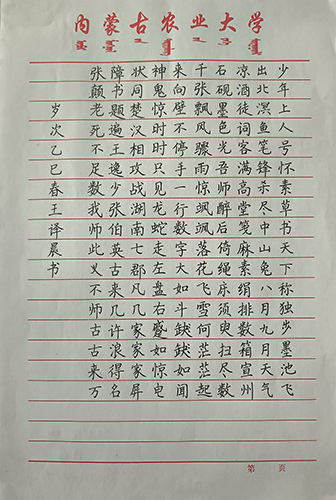 内蒙古农业大学
少年上人号怀素草书天下称独步墨池飞
出北溟鱼笔锋杀尽中山兔八月九月天气
凉酒徒词客满高堂笺麻素绢排数箱宣州
石砚墨色光吾师醉后倚绳床须臾扫尽数
千张飘风骤雨惊飒飒落花飞雪何茫茫起
来向壁不停手一行数字大如斗如闻
神鬼惊时时只见龙蛇走左盘右蹙如惊电
状同楚汉相攻战湖南七郡凡几家家家屏
障书题遍王逸少张伯英古来几许浪得名
张颠老死不足数我师此义不师古古来万
岁次乙巳春王译晨书
第 页